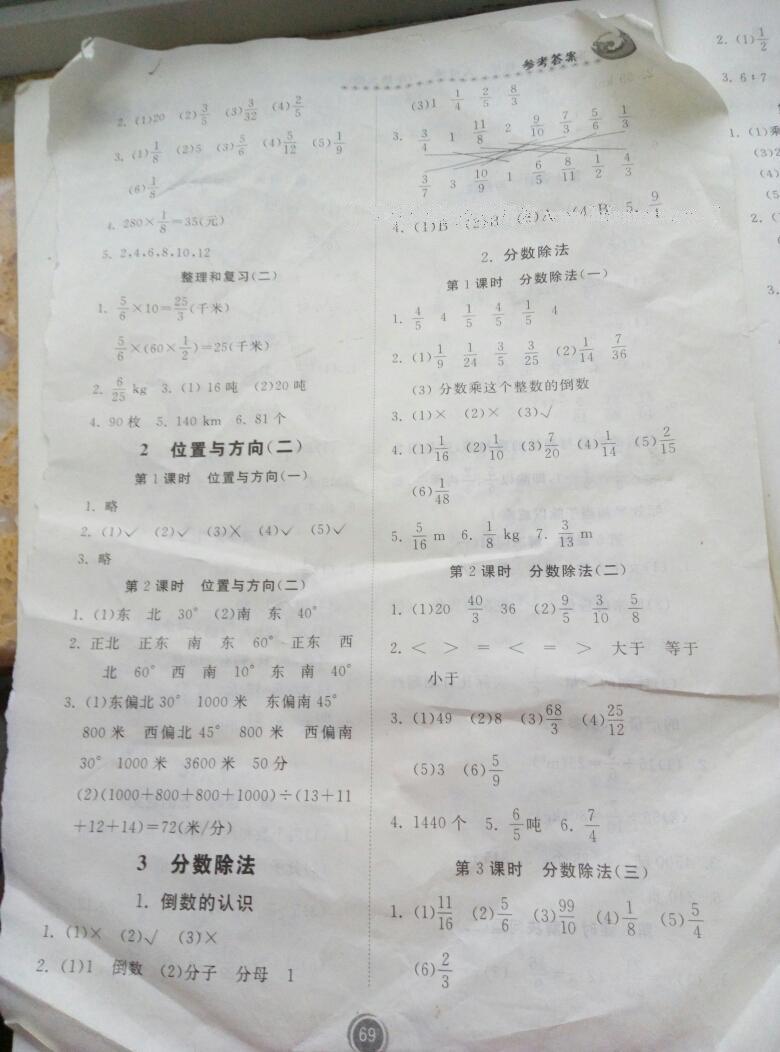 参考答案
2. (1)20 (2)3/5 (3)3/32 (4)2/5
3. (1)1/8 (2)5 (3)5/6 (4)5/12 (5)1/9
(6)1/8
4. 280×1/8=35(元)
5. 2,4,6,8,10,12
整理和复习(二)
1. 5/6×10=25/3(千米)
5/6×(60×1/2)=25(千米)
2. 6/25 kg 3. (1) 16 吨 (2)20 吨
4. 90 枚 5. 140 km 6. 81 个
2 位置与方向(二)
第 1 课时 位置与方向(一)
1. 略
2. (1)√ (2)√ (3)× (4)√ (5)√
3. 略
第 2 课时 位置与方向(二)
1. (1)东 北 30° (2)南 东 40°
2. 正北 正东 南 东 60° 正东 西
北 60° 西 南 10° 东 南 40°
3. (1)东偏北 30° 1000 米 东偏南 45°
800 米 西偏北 45° 800 米 西偏南
30° 1000 米 3600 米 50 分
(2)(1000+800+800+1000)÷(13+11
+12+14)=72(米/分)
3 分数除法
1. 倒数的认识
1. (1)× (2)√ (3)×
2. (1)1 倒数 (2)分子 分母 1
(3)1 1/4 2/5 8/3
3. 3/4 1 11/8 2 9/10 7/3 5/6 1/3
3/7 3 10/9 1 6/5 8/11 1/2 4/3
4. (1)B (3)A (4)B 5.
2. 分数除法
第 1 课时 分数除法(一)
1. 4/5 4 1/5 4/5 1/5 4
2. (1)1/9 1/24 3/5 3/25 (2)1/14 7/36
(3) 分数乘这个整数的倒数
3. (1)× (2)× (3)√
4. (1)1/16 (2)1/10 (3)7/20 (4)1/14 (5)2/15
(6)1/48
5. 5/16 m 6. 1/8 kg 7. 3/13 m
第 2 课时 分数除法(二)
1. (1)20 40/3 36 (2)9/5 3/10 5/8
2. < > = < = > 大于 等于
小于
3. (1)49 (2)8 (3)68/3 (4)25/12
(5)3 (6)5/9
4. 1440 个 5. 6/5吨 6. 7/4
第 3 课时 分数除法(三)
1. (1)11/16 (2)5/6 (3)99/10 (4)1/8 (5)5/4
(6)2/3
69
2. (1)1/2
3. 6:7
1. (1)乘
(3)2
(4)
(5
2. (
3.